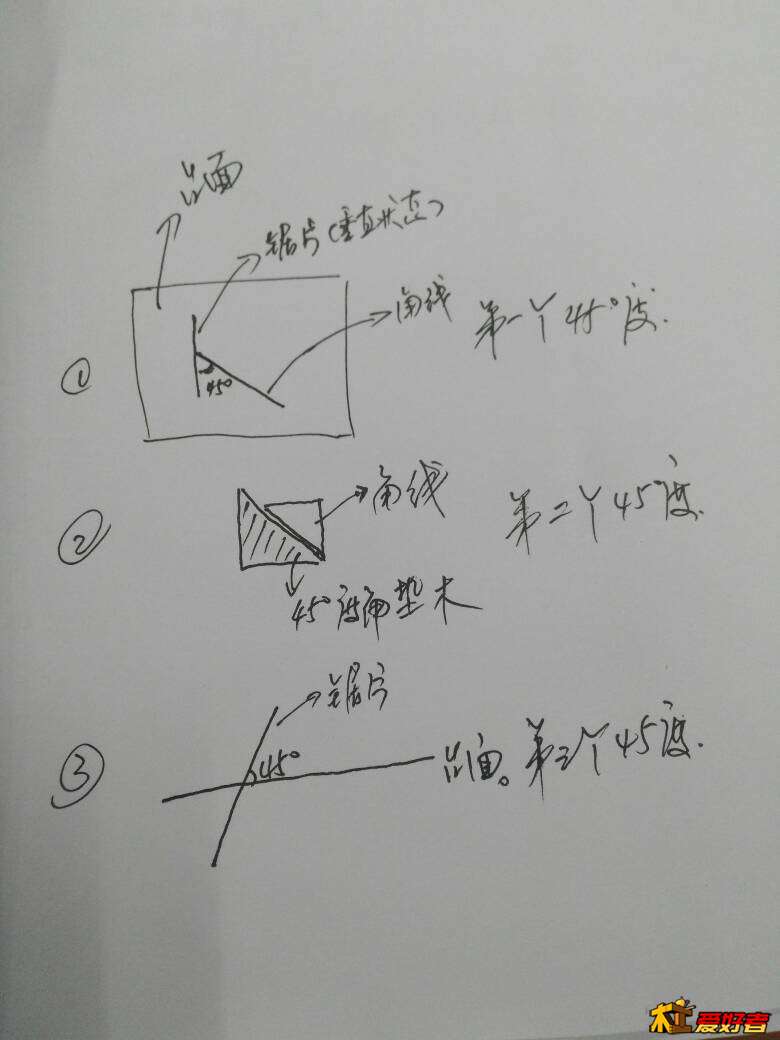 台面
锯片(垂直状态)
角线
第一个45°度.
①
45°
角线
第二个45度.
②
45°度角垫木
锯片
③
45°
台面。第三个45度.
木工爱好者